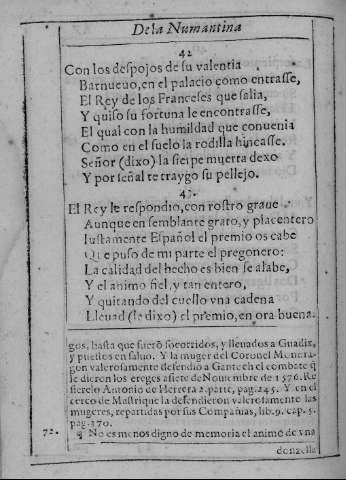 De la Numantina
42
Con los despojos de su valentia
Barnueuo, en el palacio como entrasse,
El Rey de los Franceses que salia,
Y quiso su fortuna le encontrasse,
El qual con la humildad que conuenia
Como en el suelo la rodilla hincasse.
Señor (dixo) la sierpe muerta dexo
Y por señal te traygo su pellejo.
43.
El Rey le respondio, con rostro graue
Aunque en semblante grato, y placentero
Iustamente Español el premio os cabe
Que puso de mi parte el pregonero:
La calidad del hecho es bien se alabe,
Y el animo fiel, y tan entero,
Y quitando del cuello vna cadena
Lleuad (le dixo) el premio, en ora buena.
gos, hasta que fuerõ socorridos, y lleuados a Guadix,
y puestos en saluo. Y la muger del Coronel Mondra-
gon valerosamente defendio a Gante en el combate q̃
le dieron los ereges a siete de Nouiembre de 1576. Re
fierelo Antonio de Herrera 2. parte, pag. 245. Y en el
cerco de Mastrique la defendieron valerosamente las
mugeres, repartidas por sus Compañias, lib. 9. cap. 5.
pag. 370.
72. ¶ No es menos digno de memoria el animo de vna
donzella